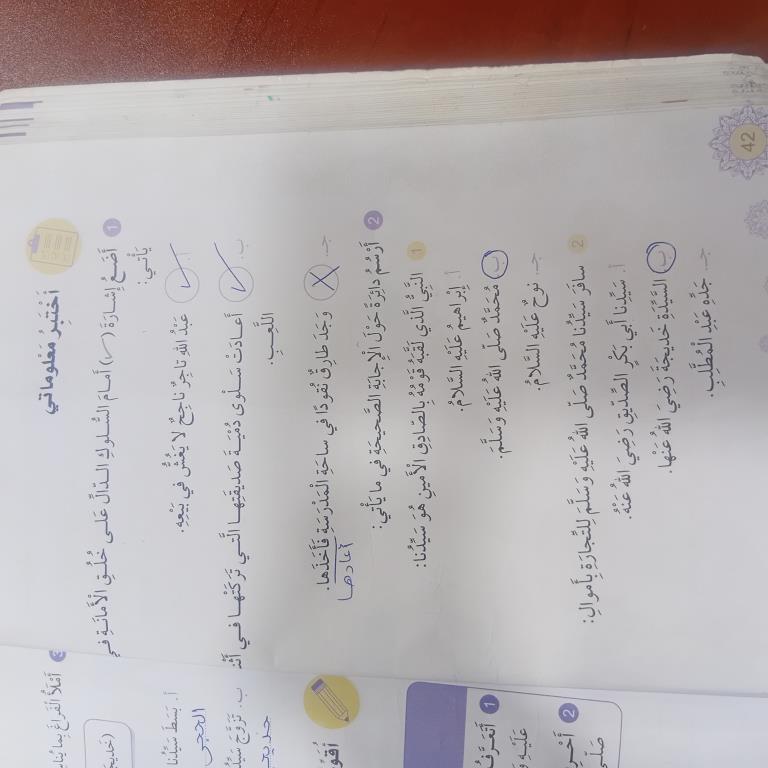 أَخْتَبِرُ مَعْلوماتي
1 أَضَعُ إِشارَةَ (✓) أَمامَ السُّلوكِ الدّالِّ عَلى خُلُقِ الْأَمانَةِ في
يَأْتي:
أ. ✓ عَبْدُ اللهِ تاجِرٌ ناجِحٌ لا يَغُشُّ في بَيْعِهِ.
ب. ✓ أَعادَتْ سَلْوى دُمْيَةَ صَديقَتِها الَّتي تَرَكَتْها في
اللَّعِبِ.
جـ. X وَجَدَ طارِقٌ نُقودًا في ساحَةِ الْمَدْرَسَةِ فَأَخَذَها.
أعادها
2 أَرْسُمُ دائِرَةً حَوْلَ الْإِجابَةِ الصَّحيحَةِ في ما يَأْتي:
1 النَّبِيُّ الَّذي لَقَّبَهُ قَوْمُهُ بِالصّادِقِ الْأَمينِ هُوَ سَيِّدُنا:
أ. إِبْراهيمُ عَلَيْهِ السَّلامُ.
ب. مُحَمَّدٌ صَلّى اللهُ عَلَيْهِ وَسَلَّمَ.
جـ. نوحٌ عَلَيْهِ السَّلامُ.
2 سافَرَ سَيِّدُنا مُحَمَّدٌ صَلّى اللهُ عَلَيْهِ وَسَلَّمَ لِلتِّجارَةِ بِأَمْوالِ:
أ. سَيِّدِنا أَبي بَكْرٍ الصِّدّيقِ رَضِيَ اللهُ عَنْهُ.
ب. السَّيِّدَةِ خَديجَةَ رَضِيَ اللهُ عَنْها.
جـ. جَدِّهِ عَبْدِ الْمُطَّلِبِ.
42
3 أَمْلَأُ الْفَراغَ بِما
أ. بَسَطَ سَيِّدُنا
الحجر
ب. تَزَوَّجَ
1 أَتَعَرَّفُ
عَلَيْهِ
2